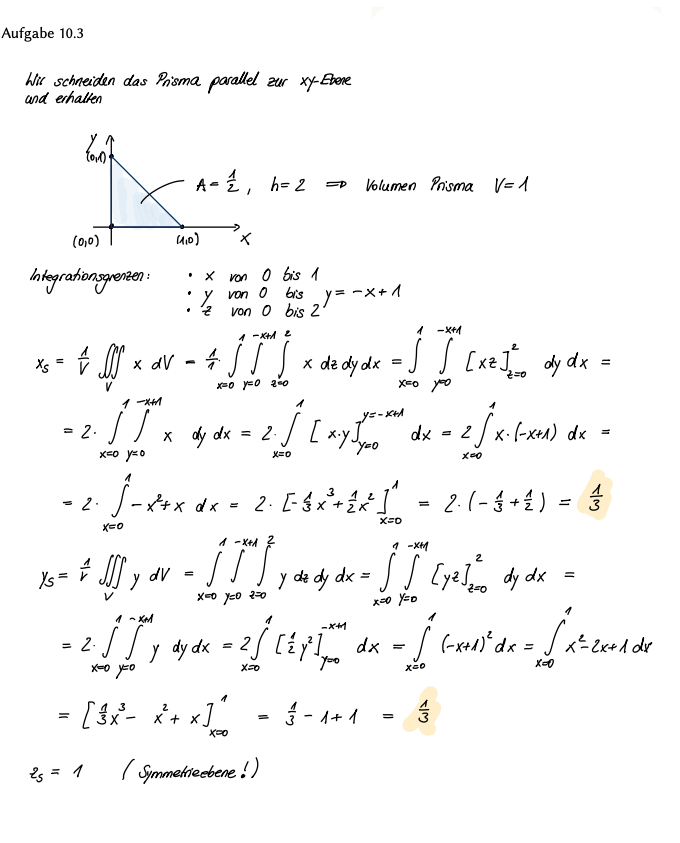 Aufgabe 10.3
Wir schneiden das Prisma parallel zur xy-Ebene
und erhalten
y
(0,1)
A = 1/2 , h = 2 ⇒ Volumen Prisma V = 1
(0,0) (1,0) x
Integrationsgrenzen: • x von 0 bis 1
• y von 0 bis y = -x+1
• z von 0 bis 2
x_S = 1/V ∭_V x dV = 1/1 · ∫_{x=0}^{1} ∫_{y=0}^{-x+1} ∫_{z=0}^{2} x dz dy dx = ∫_{x=0}^{1} ∫_{y=0}^{-x+1} [xz]_{z=0}^{2} dy dx =
= 2· ∫_{x=0}^{1} ∫_{y=0}^{-x+1} x dy dx = 2· ∫_{x=0}^{1} [x·y]_{y=0}^{y=-x+1} dx = 2 ∫_{x=0}^{1} x·(-x+1) dx =
= 2· ∫_{x=0}^{1} -x²+x dx = 2· [-1/3 x³ + 1/2 x²]_{x=0}^{1} = 2·(-1/3 + 1/2) = 1/3
y_S = 1/V ∭_V y dV = ∫_{x=0}^{1} ∫_{y=0}^{-x+1} ∫_{z=0}^{2} y dz dy dx = ∫_{x=0}^{1} ∫_{y=0}^{-x+1} [yz]_{z=0}^{2} dy dx =
= 2· ∫_{x=0}^{1} ∫_{y=0}^{-x+1} y dy dx = 2 ∫_{x=0}^{1} [1/2 y²]_{y=0}^{-x+1} dx = ∫_{x=0}^{1} (-x+1)² dx = ∫_{x=0}^{1} x²-2x+1 dx
= [1/3 x³ - x² + x]_{x=0}^{1} = 1/3 - 1 + 1 = 1/3
z_S = 1 (Symmetrieebene!)